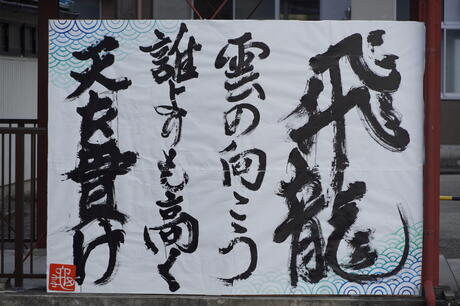 飛龍
雲の向こう
誰よりも高く
天を貫け